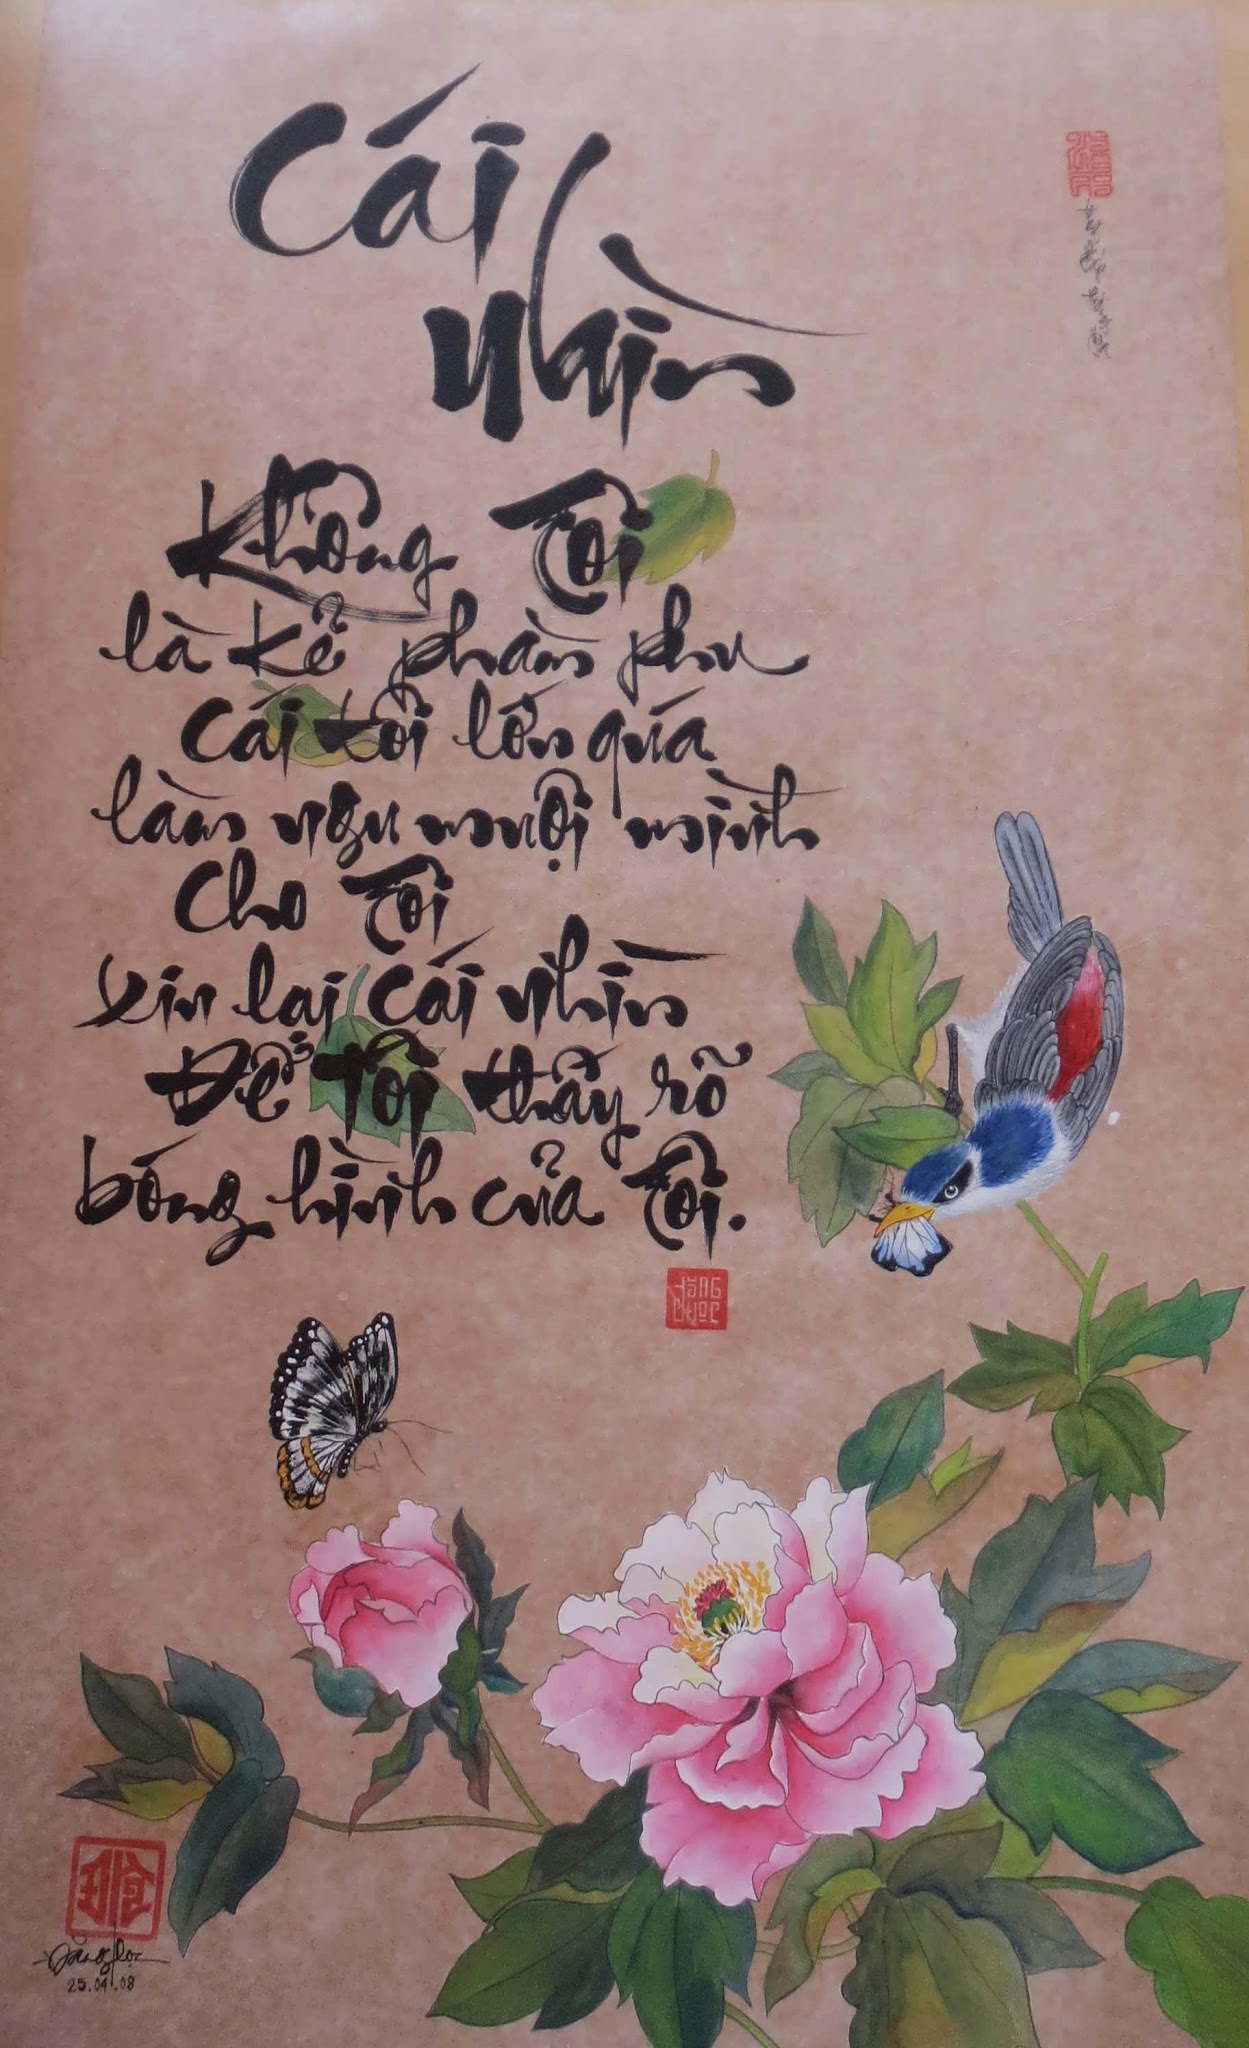 Cái
Nhìn
Không Tôi
là kẻ phàm phu
Cái tôi lớn quá
làm ngu muội mình
Cho Tôi
xin lại cái nhìn
Để Tôi thấy rõ
bóng hình của Tôi.
ĐĂNG
HỌC
25.04.08